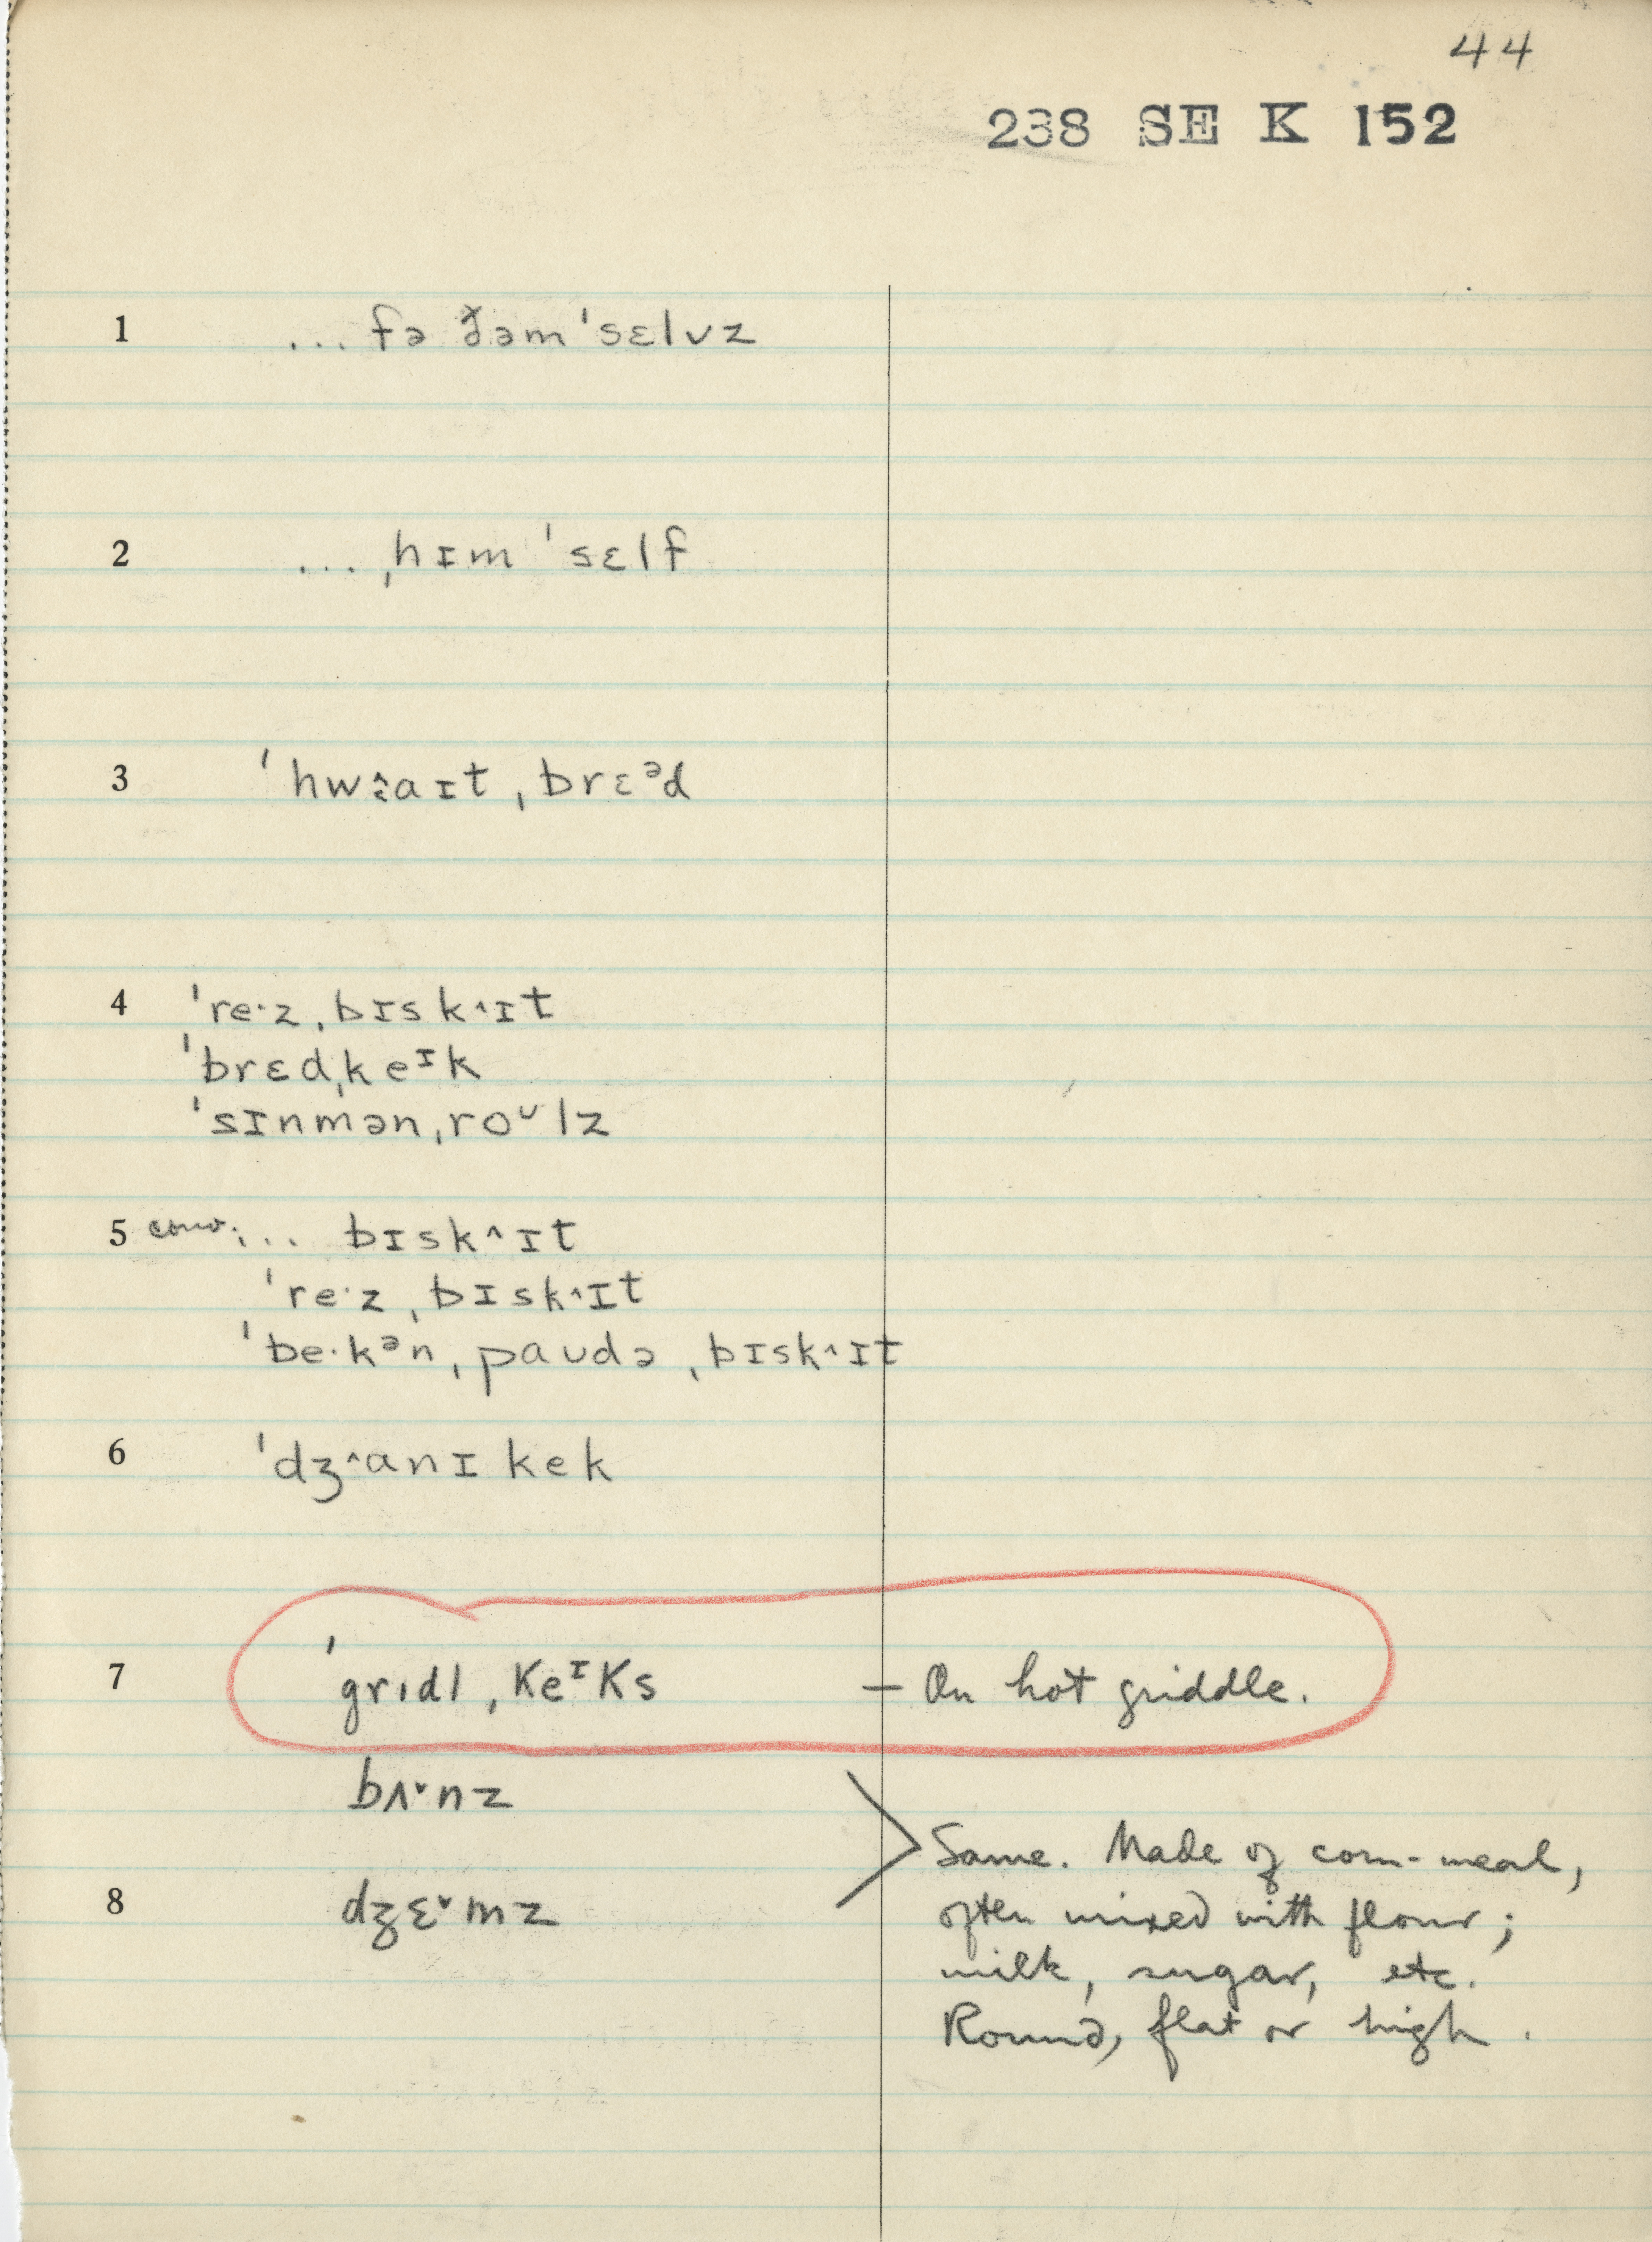 44
238 SE K 152
1 ... fə ðəm ˈsɛlvz
2 ... ˌhɪm ˈsɛlf
3 ˈhwɜ̂aɪt ˌbrɛᵊd
4 ˈre·z ˌbɪsk^ɪt
ˈbrɛd ˌkeᶦk
ˈsɪnmən ˌroᶷlz
5 conv. ... bɪsk^ɪt
ˈre·z ˌbɪsk^ɪt
ˈbe·kᵊn ˌpaʊdə ˌbɪsk^ɪt
6 ˈdʒ^anɪ kek
7 ˈgrɪdl ˌkeᶦks — On hot griddle.
bʌˇnz
Same. Made of corn-meal,
8 dʒɛˇmz
often mixed with flour;
milk, sugar, etc.
Round, flat or high.